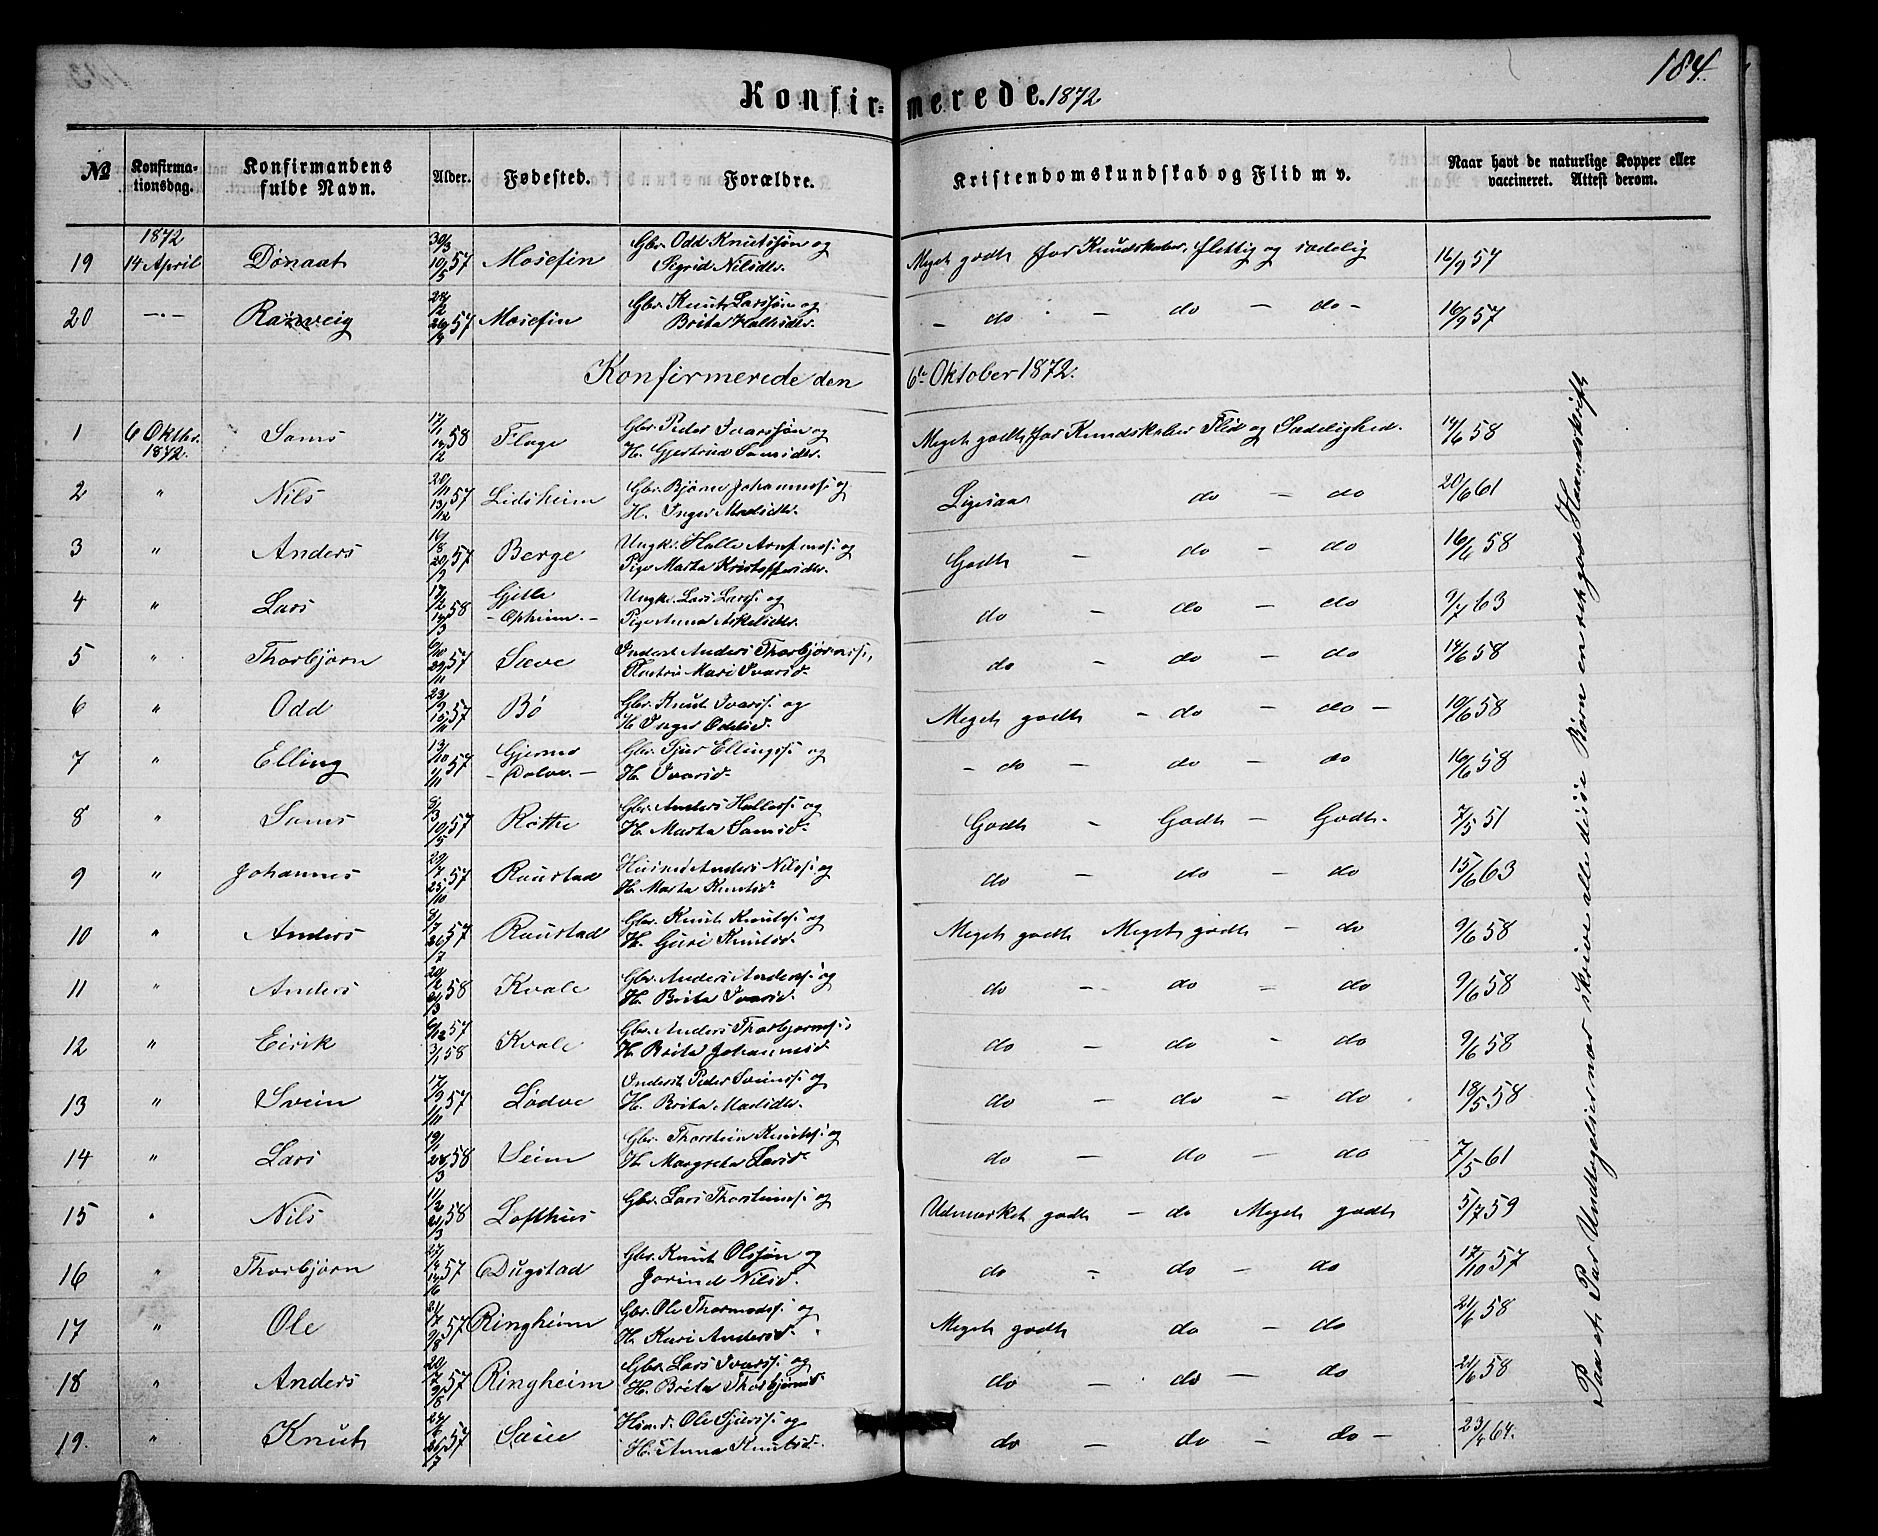 184.
Konfirmerede. 1872
№ Konfirmationsdag. Konfirmandens fulde Navn. Alder. Fødested. Forældre. Kristendomskundskab og Flid m v. Naar havt de naturlige Kopper eller vaccineret. Attest derom.
1872
19 14 April 30/3 10/5 57 Mosefin Gbr. Odd Knutssøn og Sigrid Nilsdtr. Meget godt for Kundskaber, flittig og sædelig 16/9 57
20 —"— Ranveig 57 Mosefin Gbr. Knut Larssøn og Brita Hallesdtr. - do - do - do - 16/9 57
Konfirmerede den 6te Oktober 1872.
1 6 Oktbr. 1872. Sams 58 Flage Gbr. Peder Ivarssøn og H. Gjertrud Samsdtr. Meget godt for Kundskaber Flid og Sædelighed. 14/6 58
2 " Nils 57 Lidsheim Gbr. Bjørn Johanness. og H. Inger Madsdtr. Ligesaa do - do 20/6 61
3 " Anders 16/8 20/9 57 Berge Ungk. Halle Arnfins. og Pige Marta Kristoffersdtr. Godt - do - do 58
4 " Lars 58 Gjelle - Opheim - Ungk. Lars Larss. og Pige Anna Askelsdtr. do - do - do 9/7 63
5 " Thorbjørn 57 Sæve Inderst Anders Thorbjørnss. Mari Ivarsd. do - do - do 14/6 58
6 " Odd 57 Bø Gbr. Knut Ivarss. og H. Inger Oddsd. Meget godt - do - do - 10/6 58
7 " Elling 13/10 57 Gjerme - Dolve - Gbr. Sjur Ellingss. og H. Ivarsd. - do - do - do 16/6 58
8 " Sams 10/5 57 Røthe Gbr. Anders Halless. og H. Marta Samsd. Godt - Godt - Godt. 7/5 51
9 " Johannes 57 Raustad Husmd Anders Nilss. og H. Marta Knutsd. do - do - do 15/6 63
10 " Anders 57 Raustad Gbr. Knut Knutss. og H. Guri Knutsd. Meget godt Meget godt - do 9/6 58
11 " Anders 58 Kvale Gbr. Anders Anderss. og H. Brita Ivarsd. do - do - do 9/6 58
12 " Eirik 6/12 57 3/1 58 Kvale Gbr. Anders Thorbjørnss. H. Brita Johannesd. do - do - do 9/6 58
13 " Svein 57 Lødve Inderst Peder Sveinss. og H. Brita Madsdtr. do - do - do 18/5 58
14 " Lars 19/1 28/3 58 Seim Gbr. Thorstein Knutss. og H. Margreta Larsd. do - do - do 7/5 61
15 " Nils 11/2 21/3 58 Lofthus Gbr. Lars Thorsteinss. og Udmærket godt - do Meget godt 5/7 59
16 " Thorbjørn 57 Dugstad Gbr. Knut Olssøn og Jorind Nilsd. do - do - do 17/10 57
17 " Ole 57 Ringheim Gbr. Ole Thormodss. og H. Kari Andersd. Meget godt do - do 21/6 58
18 " Anders 57 Ringheim Gbr. Lars Ivarss. og H. Brita Thorbjørnsd. do - do - do 21/6 58
19. " Knut 57 Saue Husmd. Ole Sjurss. og H. Anna Knutsd. do - do - do - 23/4 64.
Paa et Par Undtagelser nær skrive alle disse Børn en ret god Haandskrift